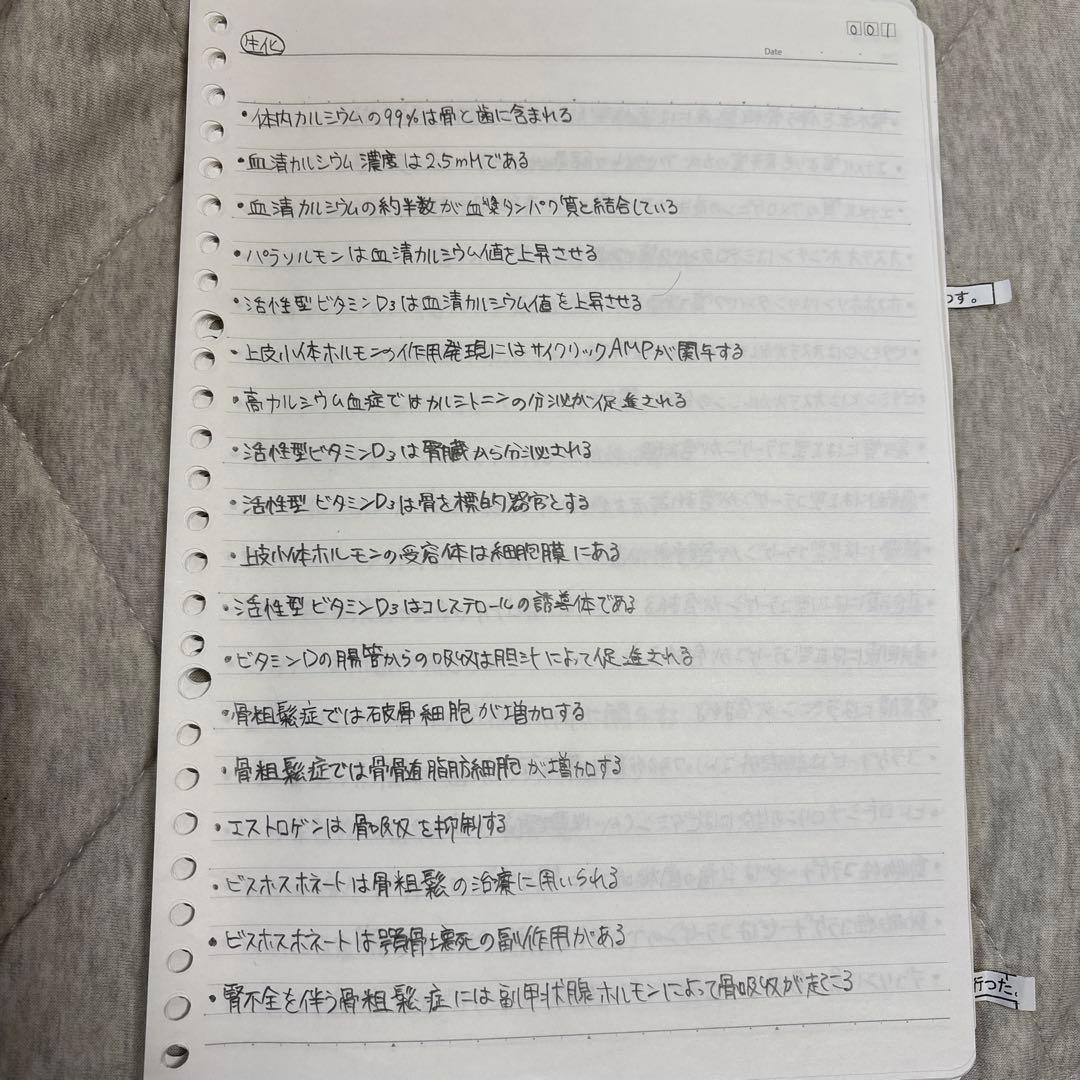 生化
001
Date
・体内カルシウムの99%は骨と歯に含まれる
・血清カルシウム濃度は2.5mMである
・血清カルシウムの約半数が血漿タンパク質と結合している
・パラソルモンは血清カルシウム値を上昇させる
・活性型ビタミンD₃は血清カルシウム値を上昇させる
す。
・上皮小体ホルモンの作用発現にはサイクリックAMPが関与する
・高カルシウム血症ではカルシトニンの分泌が促進される
・活性型ビタミンD₃は腎臓から分泌される
・活性型ビタミンD₃は骨を標的器官とする
・上皮小体ホルモンの受容体は細胞膜にある
・活性型ビタミンD₃はコレステロールの誘導体である
・ビタミンDの腸管からの吸収は胆汁によって促進される
・骨粗鬆症では破骨細胞が増加する
・骨粗鬆症では骨髄脂肪細胞が増加する
・エストロゲンは骨吸収を抑制する
・ビスホスホネートは骨粗鬆の治療に用いられる
・ビスホスホネートは顎骨壊死の副作用がある
行った。
・腎不全を伴う骨粗鬆症には副甲状腺ホルモンによって骨吸収が起こる